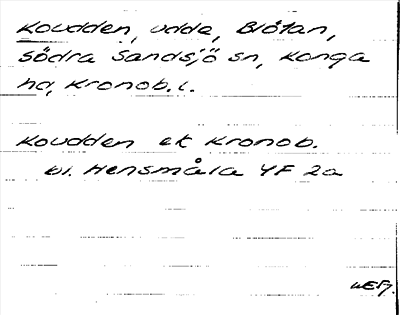 Koudden, udde, Blötan,
södra Sandsjö sn, Konga
hd, Kronob. l.
Koudden ek Kronob.
bl. Hensmåla 4F 2a